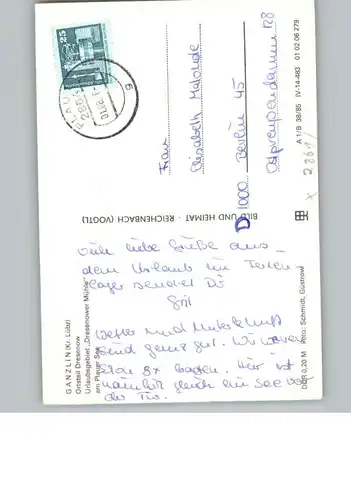 GANZLIN (Kr. Lübz)
Ortsteil Dresenow
Urlaubsgebiet „Dresenower Mühle“
am Plauer See
Viele liebe Grüße aus
dem Urlaub im Ferien-
lager sendet Dir
Wetter und Unterkunft
sind ganz gut. Wir waren
schon 8x baden. Hier ist
nämlich gleich ein See vor
der Tür.
DDR 0,20 M Foto: Schmidt, Güstrow
BILD UND HEIMAT · REICHENBACH (VOGTL)
25
PLAU
286
Frau
Elisabeth
D 1000 Berlin 45
Ostpreußendamm 128
A 1/B 38/85 IV-14-483 01 02 06 279
x 2861